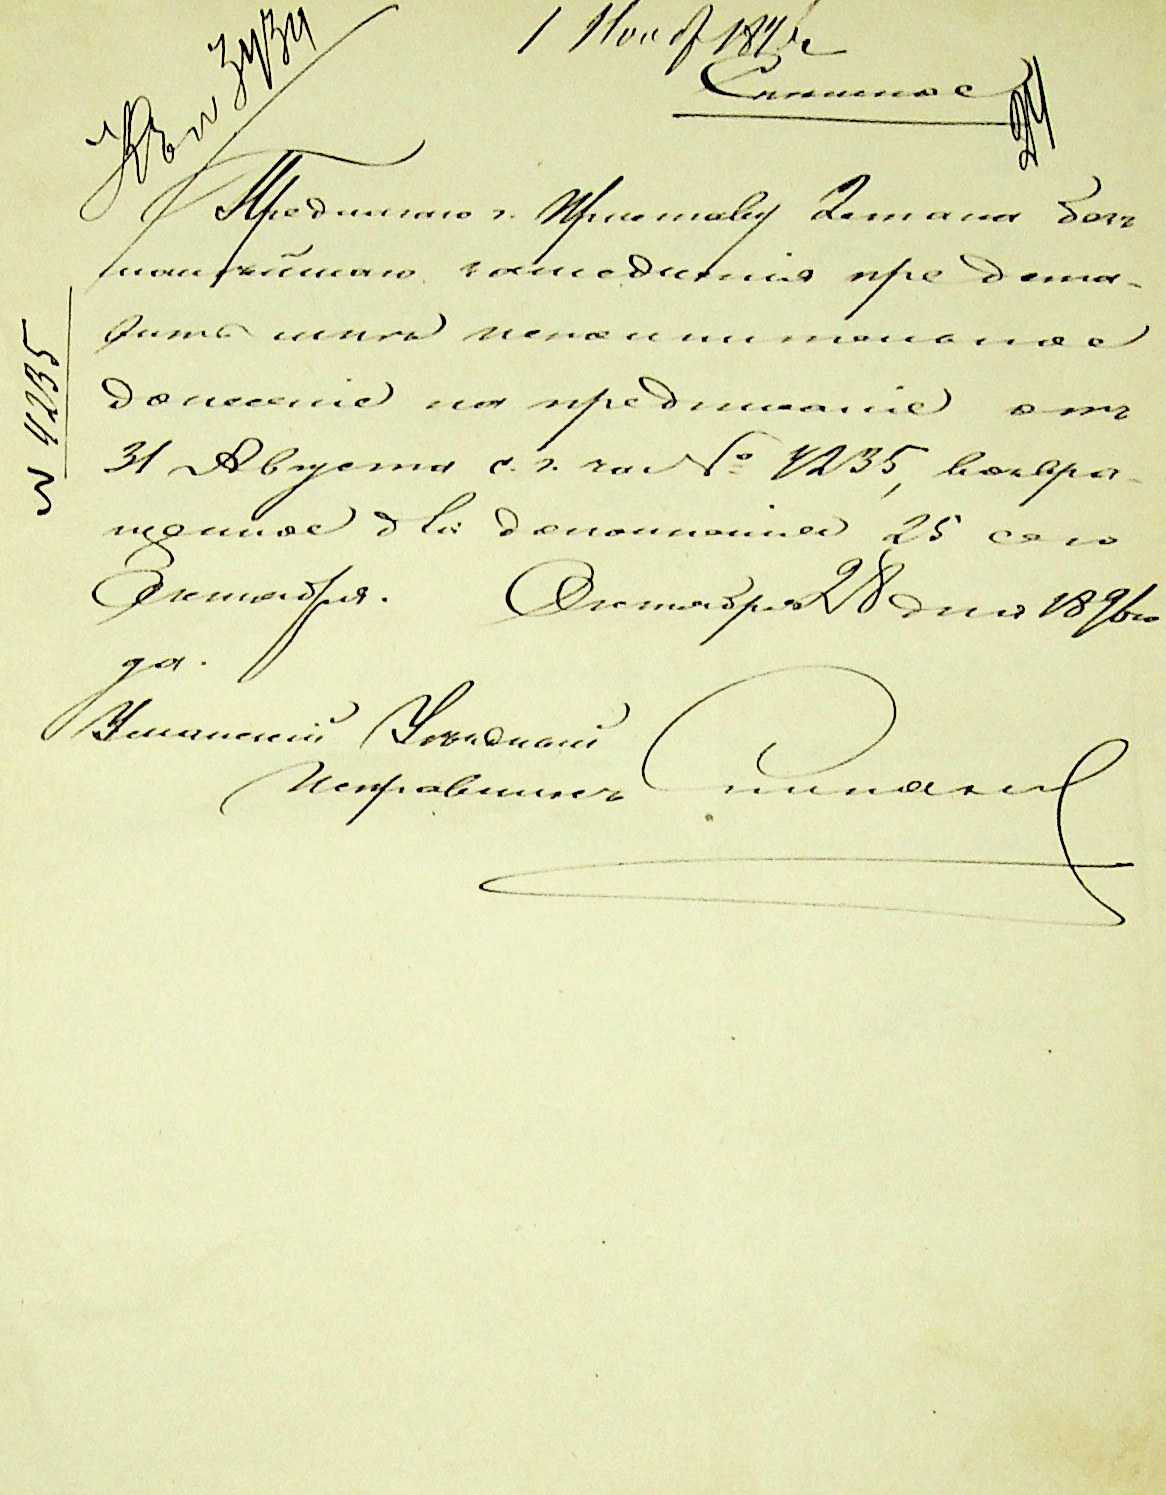 1 Нояб 189
Спешное
24
3434
Предписываю г. Приставу 2 стана безъ
малѣйшаго замедленія предста-
вить мнѣ исполнительное
донесеніе на предписаніе отъ
31 Августа с. г. за № 4235, возвра-
щенное для дополненія 25 сего
Октября. Октября 28 дня 1896 го
да.
Уманскій Уѣздный
Исправникъ
№ 5325